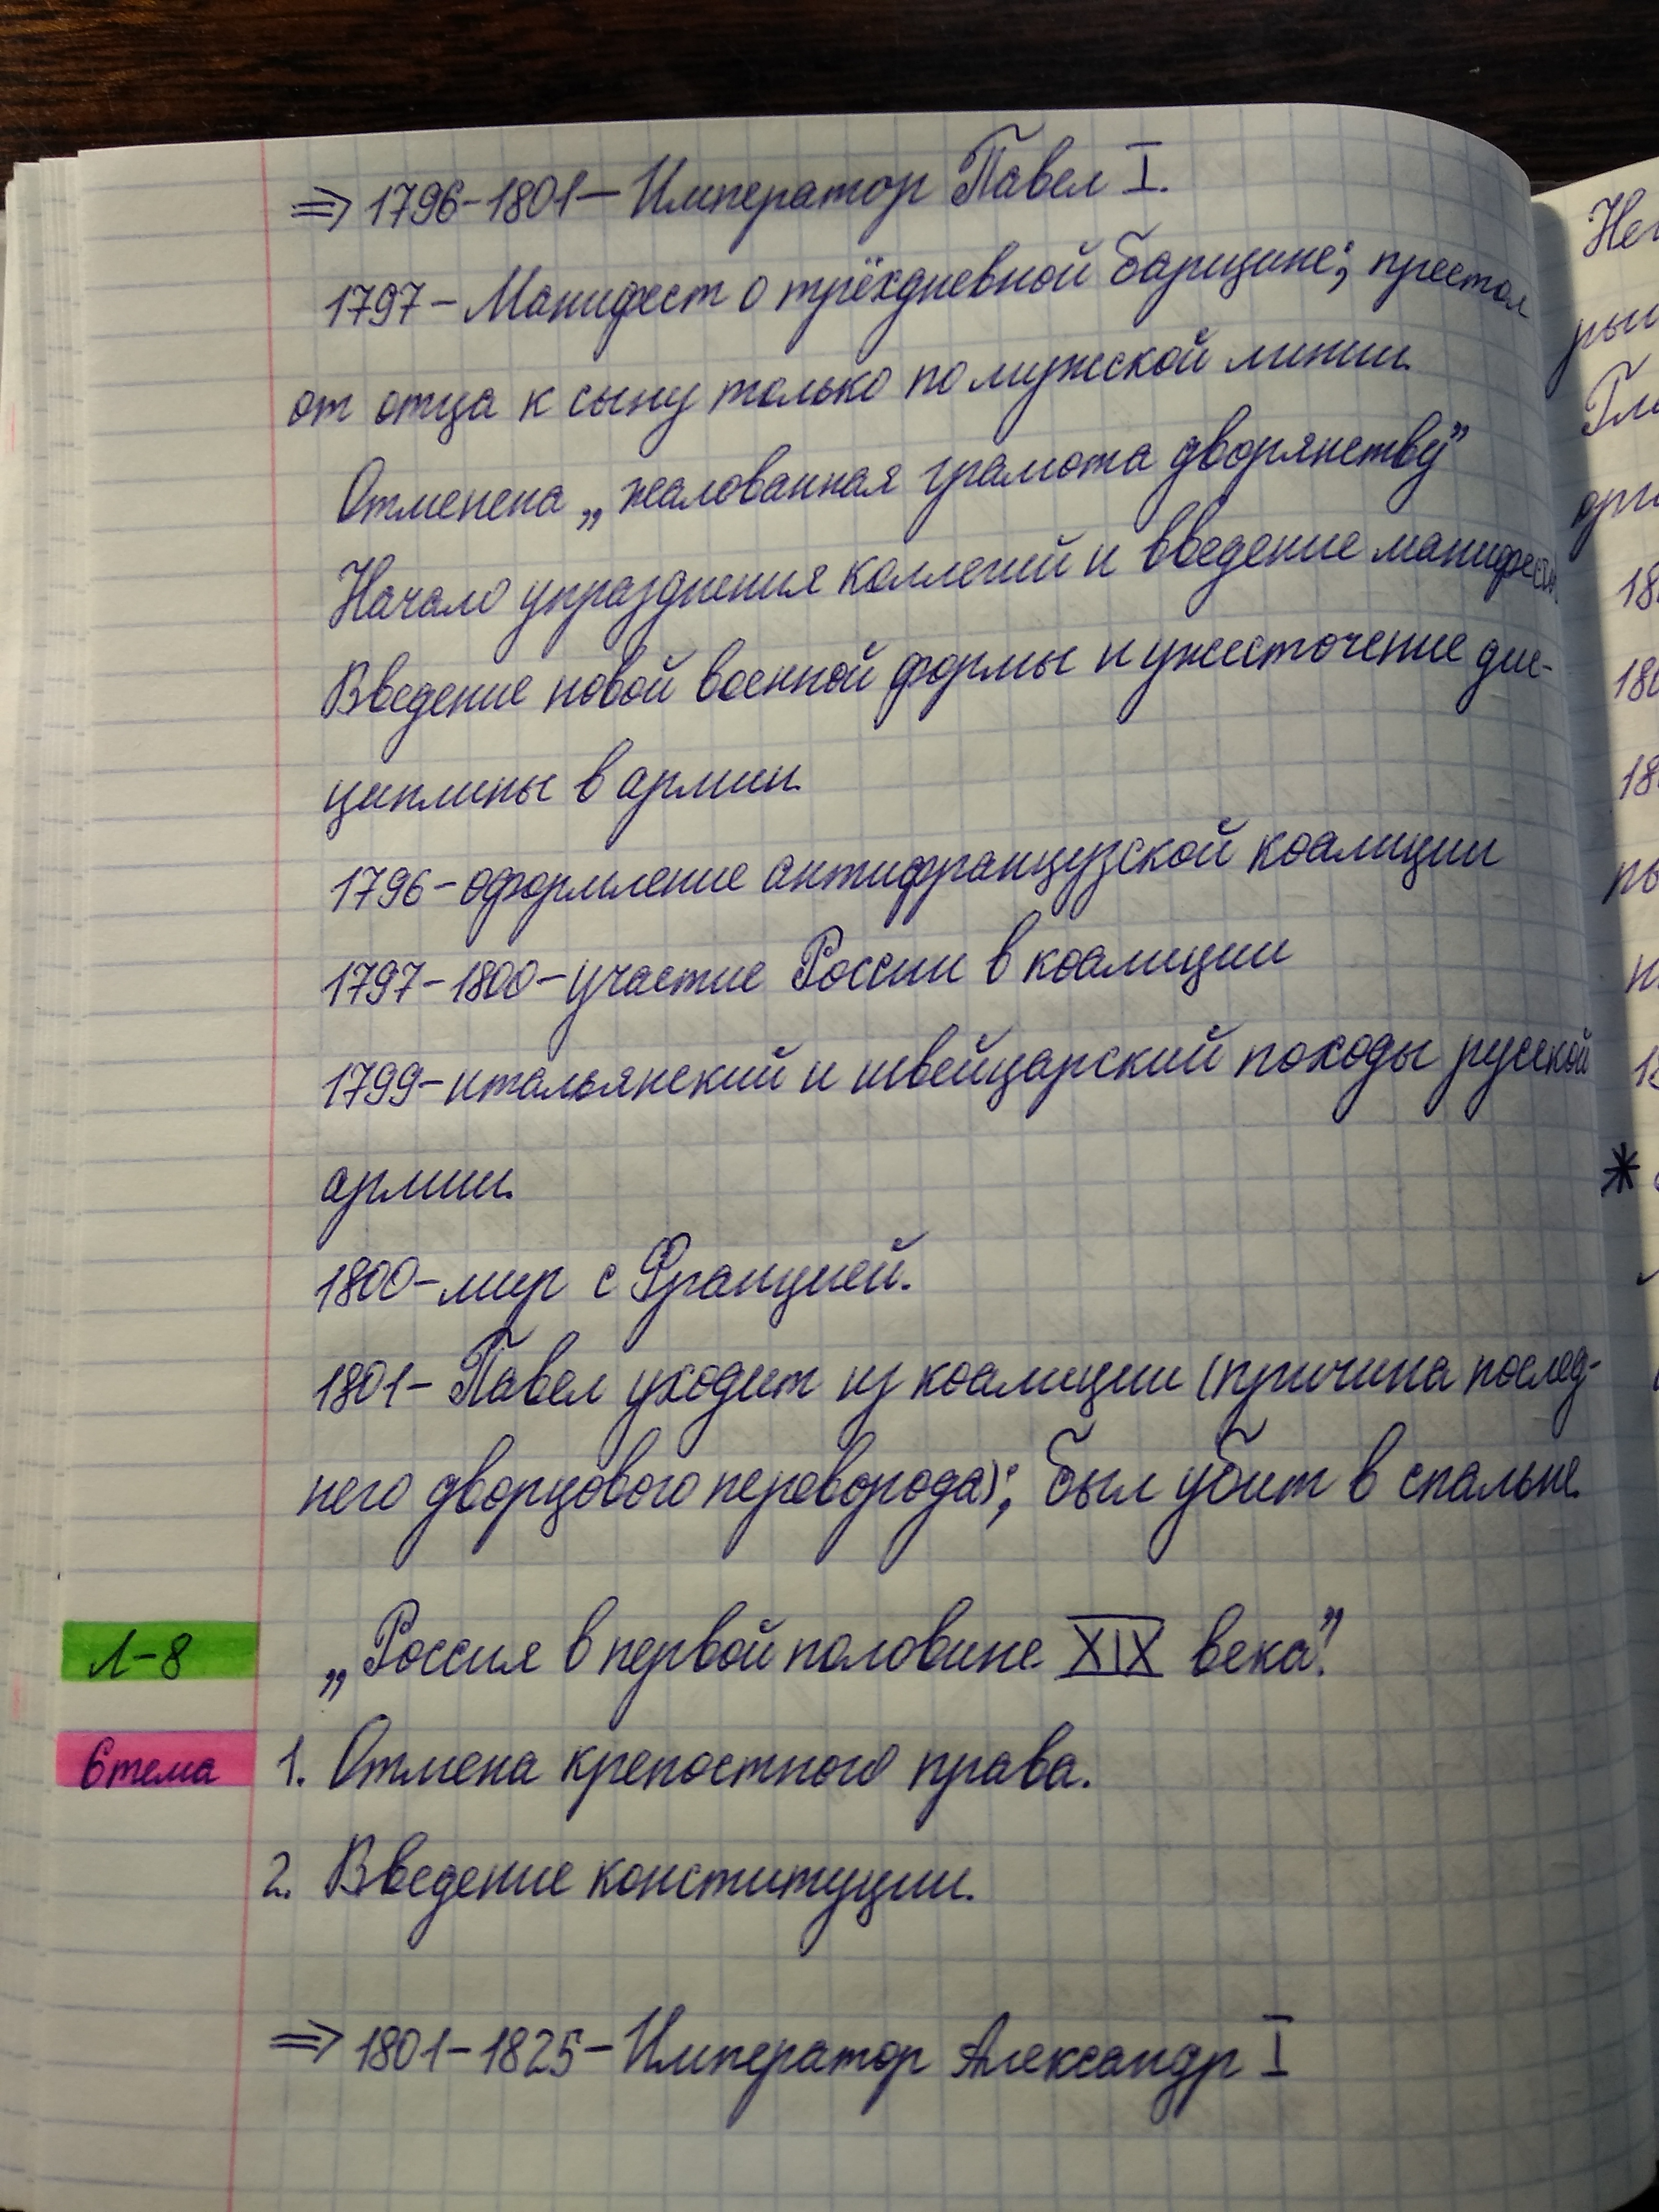 ⇒ 1796-1801 – Император Павел I.
1797 – Манифест о трёхдневной барщине; престол
от отца к сыну только по мужской линии.
Отменена „жалованная грамота дворянству”
Начало упразднения коллегий и введение манифеста.
Введение новой военной формы и ужесточение дис-
циплины в армии.
1796 – оформление антифранцузской коалиции
1797-1800 – участие России в коалиции
1799 – итальянский и швейцарский походы русской
армии.
1800 – мир с Францией.
1801 – Павел уходит из коалиции (причина послед-
него дворцового переворода); был убит в спальне.
Л-8 „Россия в первой половине XIX века”.
6 тема 1. Отмена крепостного права.
2. Введение конституции.
⇒ 1801-1825 – Император Александр I